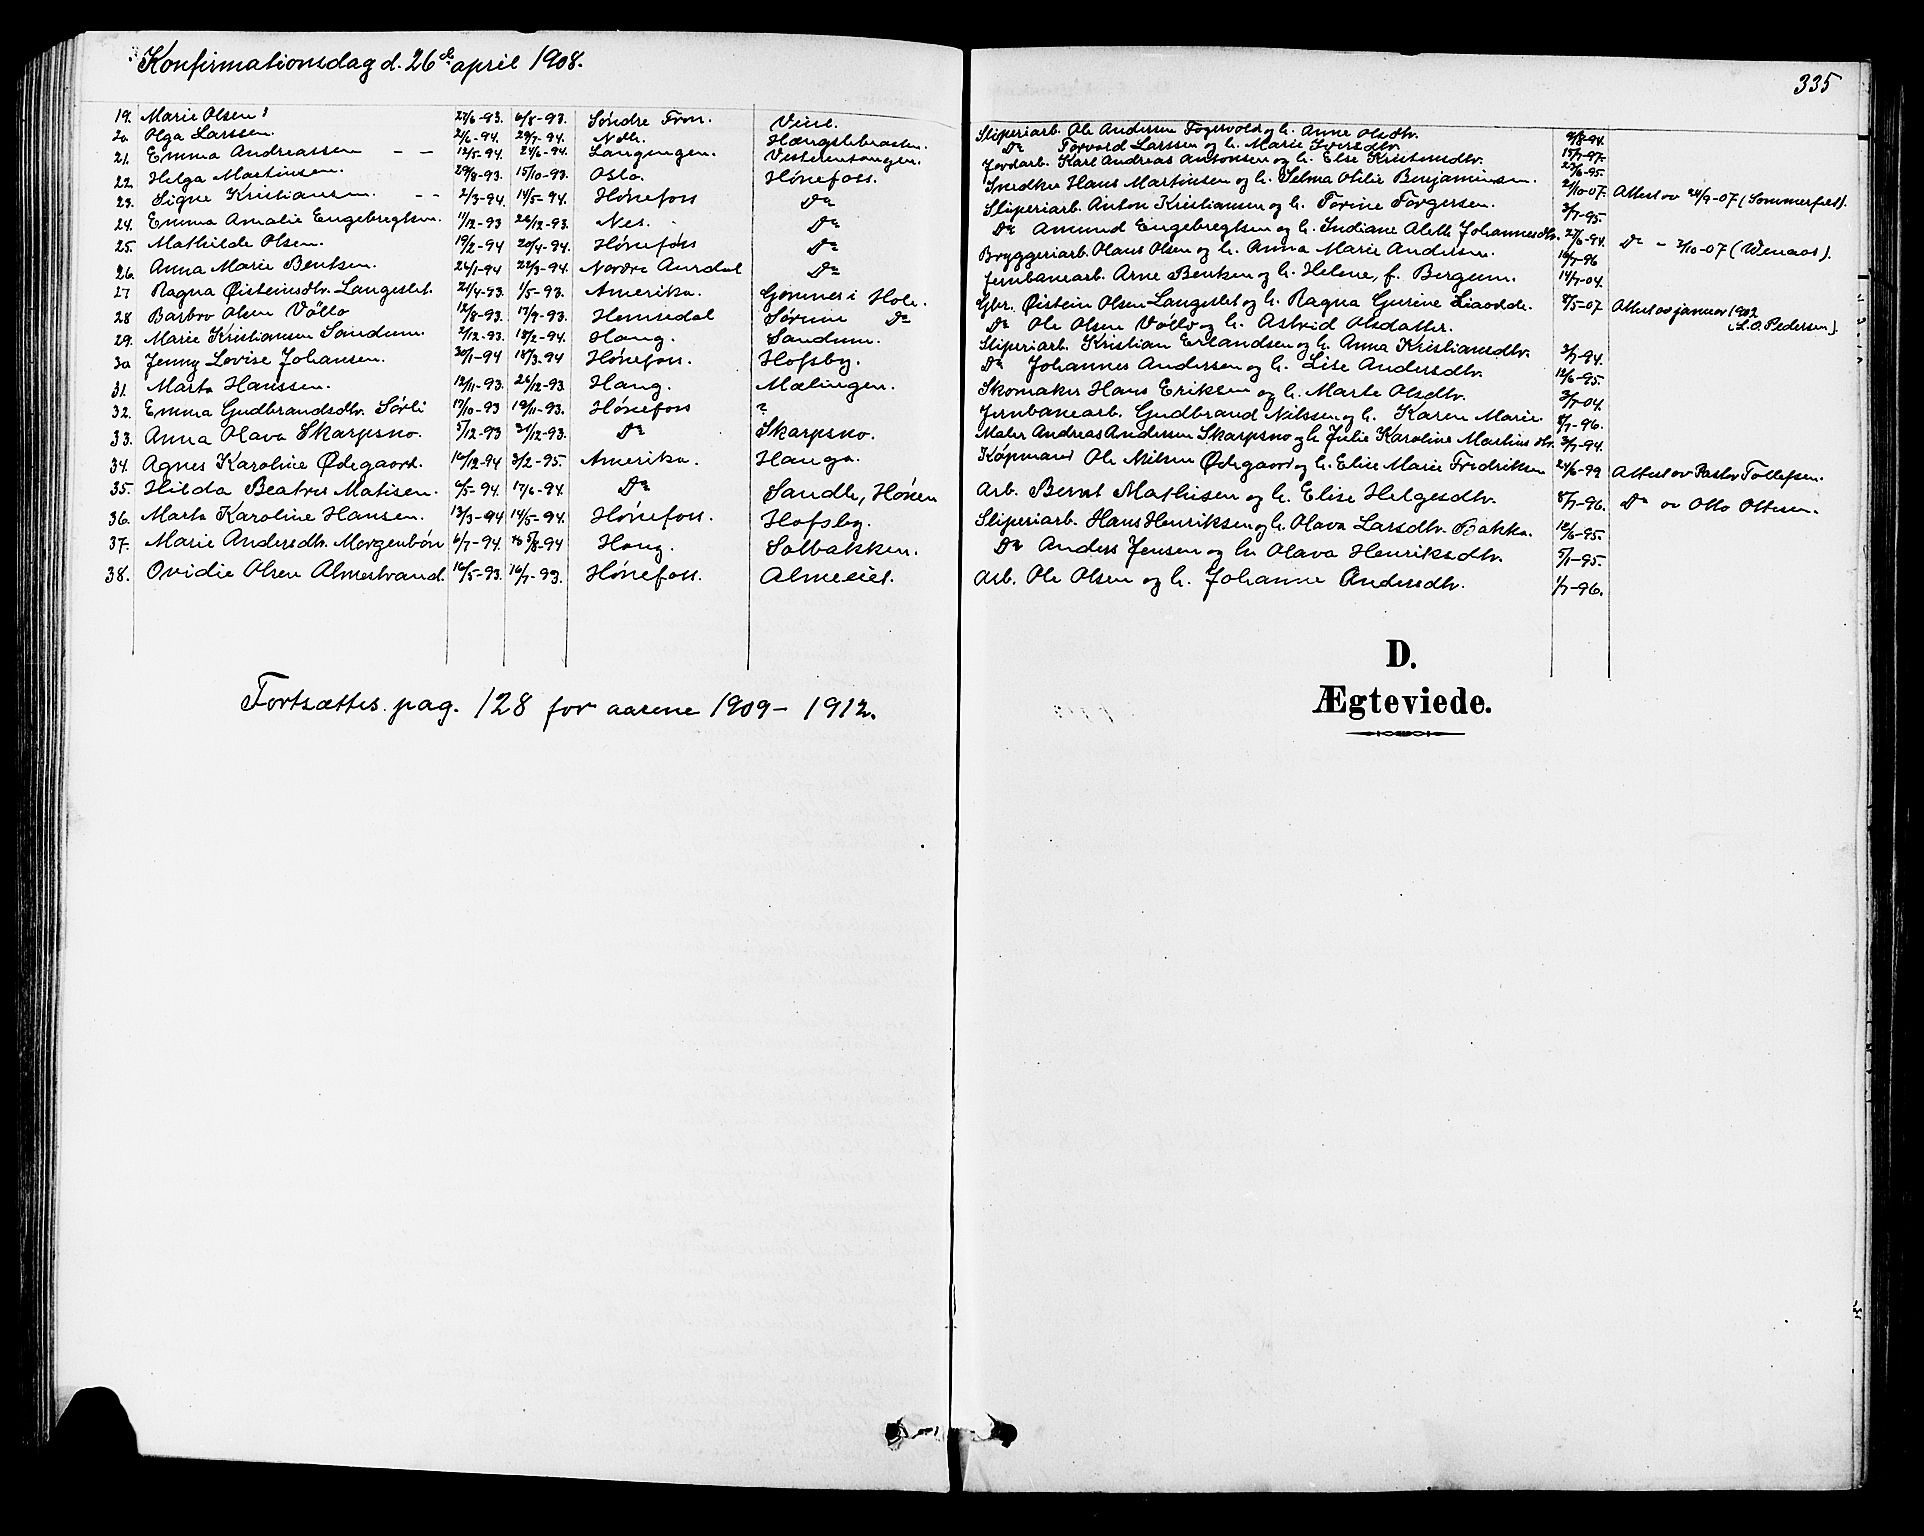 Konfirmationsdag d. 26de april 1908.
19. Marie Olsen 6/8-93. Søndre Fron. Veme.
20 Olga Larssen. 2/6-94. 29/7-94.
21. Emma Andreassen - - 12/5-94. 24/6-94. Langangen. Vesterntangen.
22. Helga Martinsen. 29/8-93. 15/10-93. Oslo. Hønefoss.
23. Signe Kristiansen. - - 2/3-94. 14/5-94. Hønefoss Do
24. Emma Amalie Engebregtsen. 11/12-93 26/12-93. Nes. Do
25. Mathilde Olsen. 19/2-94 20/4-94. Hønefoss Do
26. Anna Marie Bentsen. 26/1-94 22/3-94 Nordre Aurdal Do
27 Ragna Øisteinsdtr. Langeslet. 21/4-93. 1/5-93. Amerika. Gommes i Hole.
28 Barbro Olsen Völlo 12/8-93. 17/9-93. Hemsedal Sørum Do
29. Marie Kristiansen Sandum. 2/12-93. 18/2-94. Haug. Sandum.
30 Jenny Lovise Johansen. 30/1-94 18/3-94 Hønefoss. Hofsby.
31. Marta Hanssen. 12/11-93. 26/12-93 Haug. Mælingen.
32. Emma Gudbrandsdtr. Sørli 17/10-93 19/11-93. Hønefoss ?
33. Anna Olava Skarpsno. 5/12-93 31/12-93. Do Skarpsno.
34. Agnes Karoline Ødegaard. 16/12-94 3/2-95. Amerika. Hauga.
35. Hilda Beatris Matisen. 6/5-94. 17/6-94. Do Sandli, Hønen
36. Marta Karoline Hansen. 13/3-94 14/5-94. Hønefoss. Hofsby.
37. Marie Andersdtr. Morgenbön 6/7-94. 5/8-94 Haug. Solbakken.
38. Ovidie Olsen Almestrand. 16/5-93. 16/7-93. Hønefoss. Almeeiet.
Fortsættes pag. 128 for aarene 1909-1912.
335
Sliperiarb. Ole Andersen Fagervold og h. Anne Olsdtr. 9/8-94.
Do Torvald Larssen og h. Marie Iversdtr. 15/7-97.
Jordarb. Karl Andreas Antonsen og h. Else Kristensdtr. 27/6-95.
Snedker Hans Martinsen og h. Selma Otilie Benjaminsen. 2/10-07. Attest av 24/9-07 (Sommerfelt).
Sliperiarb. Anton Kristiansen og h. Torine Törgersen. 3/7-95.
Do Amund Engebregtsen og h. Indiane Aleth Johannesdtr. 27/6-94. Do - 2/10-07 (Wenaas).
Bryggeriarb. Olaus Olsen og h. Anna Marie Andersen. 16/7-96
Jernbanearb. Arne Bentsen og h. Helene, f. Bergum. 14/7-04.
Gbr. Øistein Olsen Langeslet og h. Ragna Gurine Liaodde. 8/5-07. Attest av januar 1902
(S.O. Pedersen)
Do Ole Olsen Völlo og h. Astrid Olsdatter.
Sliperiarb. Kristian Erlandsen og h. Anna Kristiansdtr. 3/7-94.
Do Johannes Andersen og h. Lise Andersdtr. 12/6-95.
Skomaker Hans Eriksen og h. Marte Olsdtr. 3/7-04.
Jernbanearb. Gudbrand Nilssen og h. Karen Marie. 8/7-96.
Maler Andreas Andersen Skarpsno og h. Julie Karoline Martinsdtr. 3/7-94.
Köpmand Ole Nilsen Ødegaard og h. Elise Marie Fredriksen 24/6-99 Attest av Pastor Tollefsen.
Arb. Bernt Mathisen og h. Elise Helgesdtr. 8/7-96. Do av Otto Ottesen.
Sliperiarb. Hans Henriksen og h. Olava Larsdtr. Bakka. 12/6-95.
Do Anders Jensen og h. Olava Henriksdtr. 5/7-95.
Arb. Ole Olsen og h. Johanne Andersdtr. 1/7-96.
D.
Ægteviede.